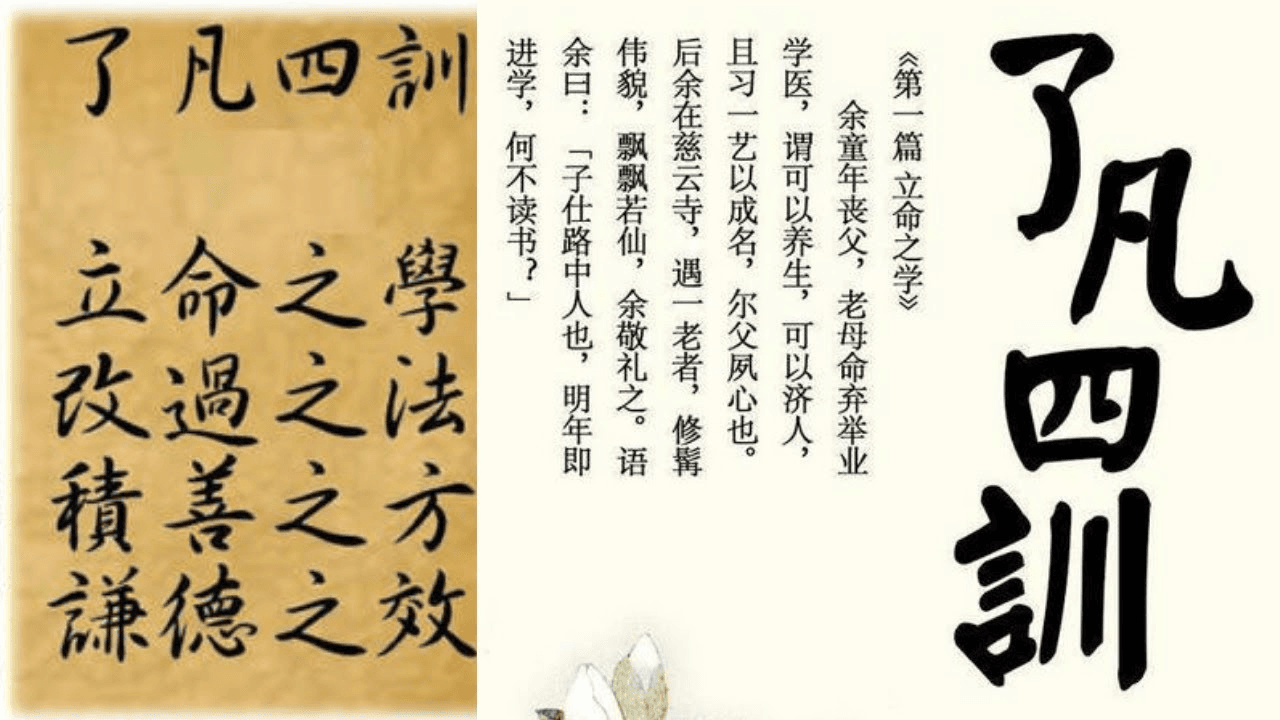 了凡四訓
立命之學
改過之法
積善之方
謙德之效
了凡四訓
《第一篇 立命之学》
余童年丧父，老母命弃举业
学医，谓可以养生，可以济人，
且习一艺以成名，尔父夙心也。
后余在慈云寺，遇一老者，修髯
伟貌，飘飘若仙，余敬礼之。语
余曰：「子仕路中人也，明年即
进学，何不读书？」